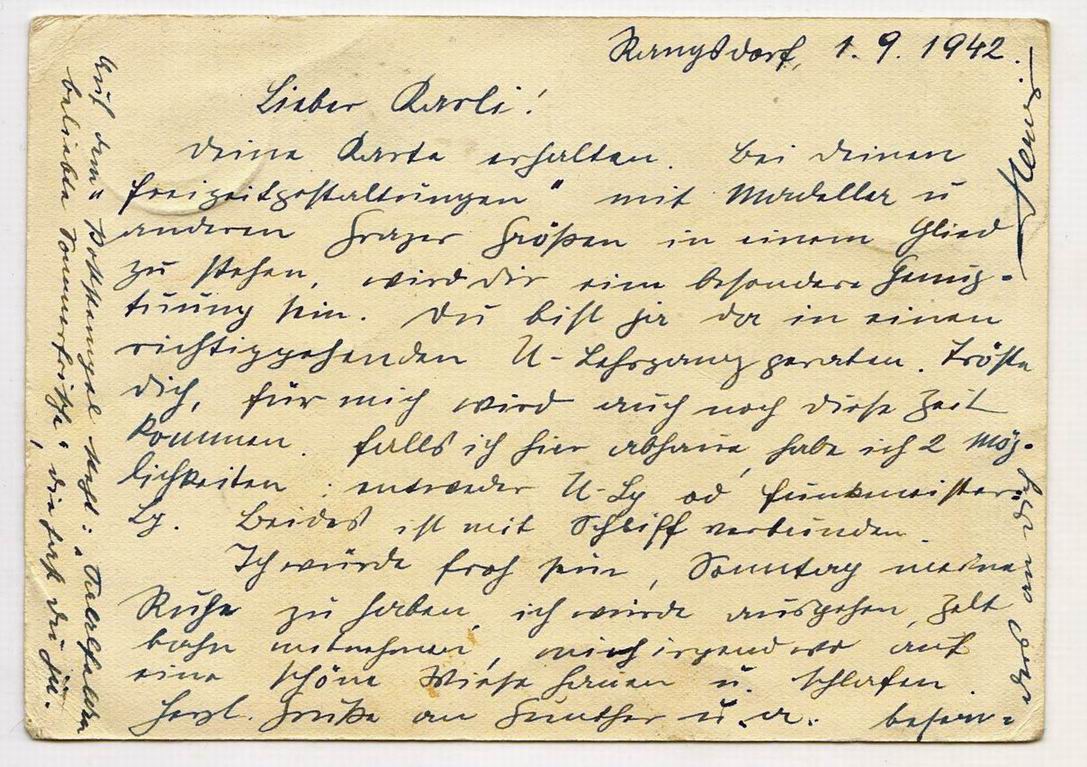 Rangsdorf, 1. 9. 1942.
Lieber Karli!
Deine Karte erhalten. Bei deinen
"Freizeitgestaltungen" mit u
anderen Grazer Größen in einem Glied
zu stehen, wird dir eine besondere Genug-
tuung sein. Du bist ja da in einen
richtiggehenden U-Lehrgang geraten. Tröste
dich, für mich wird auch noch diese Zeit
kommen. Falls ich hier abhaue, habe ich 2 Mög-
lichkeiten: entweder U-Lg od Funkmeister-
Lg. Beides ist mit Schliff verbunden.
Ich würde froh sein, Sonntag meine
Ruhe zu haben, ich würde ausgehen, Zelt
bahn mitnehmen, mich irgendwo auf
eine schöne Wiese hauen u. schlafen.
Herzl. Grüße an Günther u. a. beson-
ders
Auf dem Poststempel steht: "
beliebte Sommerfrische", die hast du ja.